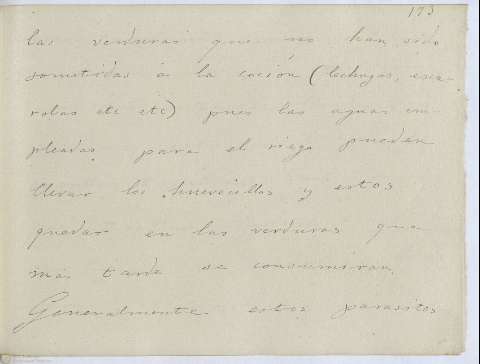 173
las verduras que no han sido
sometidas á la coción (lechugas, esca-
rolas etc etc) pues las aguas em-
pleadas para el riego pueden
llevar los huevecillos y estos
quedar en las verduras que
mas tarde se consumiran.
Generalmente estos parasitos